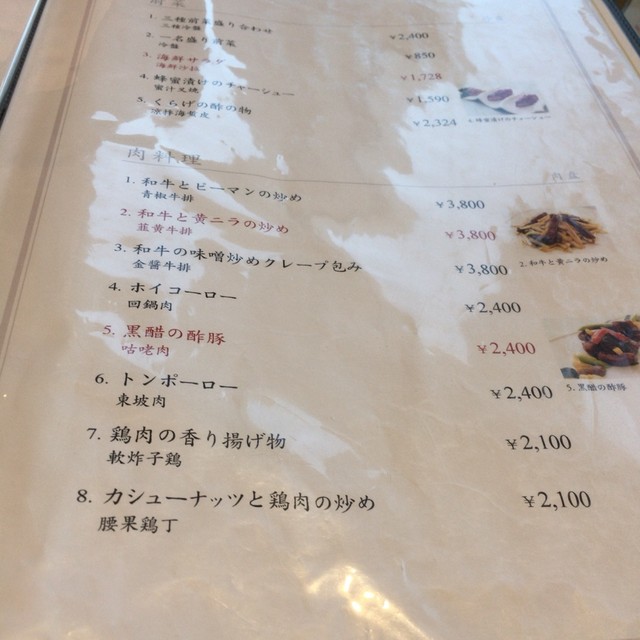 前菜
1. 三種前菜盛り合わせ ¥2,400
三種冷盤
2. 一名盛り前菜 ¥850
冷盤
3. 海鮮サラダ ¥1,728
海鮮沙拉
4. 蜂蜜漬けのチャーシュー ¥1,590
蜜汁叉焼
5. くらげの酢の物 ¥2,324
涼拌海蜇皮
肉料理
1. 和牛とピーマンの炒め ¥3,800
青椒牛排
2. 和牛と黄ニラの炒め ¥3,800
韮黄牛排
2. 和牛と黄ニラの炒め
3. 和牛の味噌炒めクレープ包み ¥3,800
金醤牛排
4. ホイコーロー ¥2,400
回鍋肉
5. 黒醋の酢豚 ¥2,400
咕咾肉
5. 黒醋の酢豚
6. トンポーロー ¥2,400
東坡肉
7. 鶏肉の香り揚げ物 ¥2,100
軟炸子鶏
8. カシューナッツと鶏肉の炒め ¥2,100
腰果鶏丁